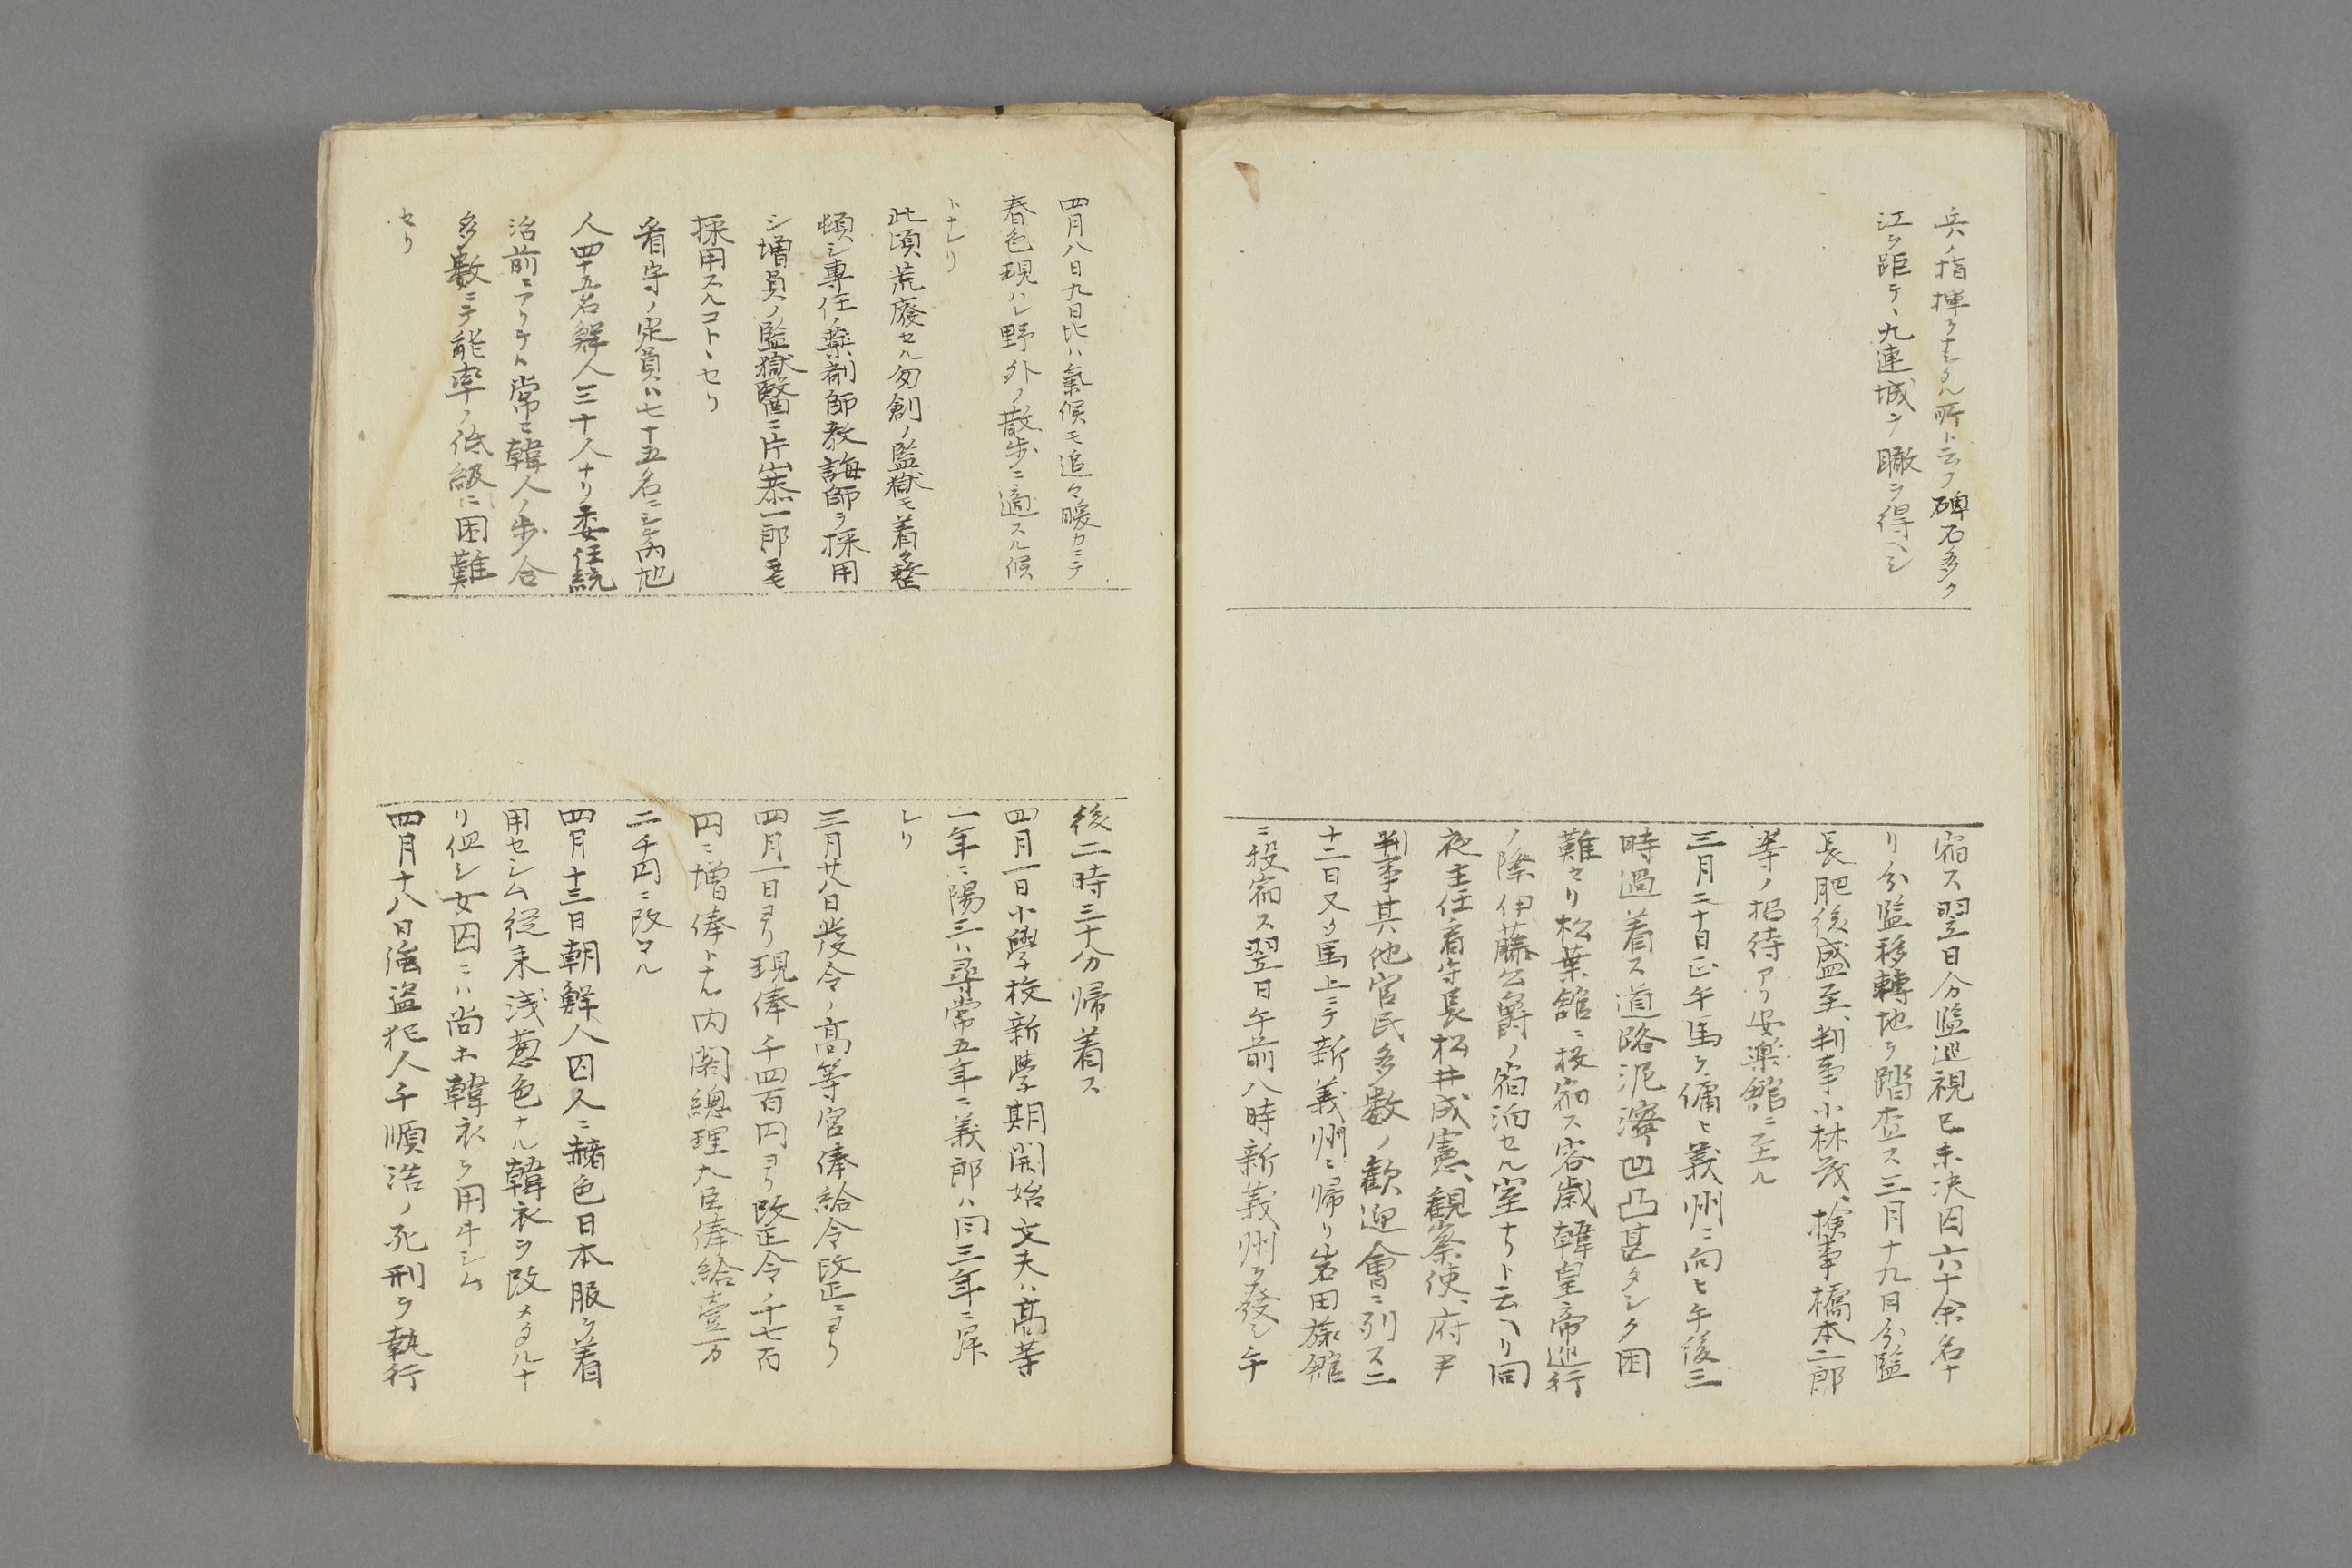 兵ノ指揮ヲナシタル所ト云フ碑石多ク
江ヲ距テ、九連城ヲ瞰ヲ得ヘシ
宿ス翌日分監巡視已未決囚六十余名ナ
リ分監移轉地ヲ踏査ス三月十九日分監
長肥後盛至、判事小林茂、検事橋本二郎
等ノ招待アリ安楽館ニ至ル
三月二十日正午馬ヲ傭ヒ義州ニ向ヒ午後三
時過着ス道路泥濘凹凸甚タシク困
難セリ松葉館ニ投宿ス客歳韓皇帝巡行
ノ際伊藤公爵ノ宿泊セル室ナリト云ヘリ同
夜主任看守長松井成憲、観察使、府尹
判事其他官民多数ノ歓迎會ニ列ス二
十二日又タ馬上ニテ新義州ニ帰リ岩田旅館
ニ投宿ス翌日午前八時新義州ヲ發シ午
四月八日九日比ハ氣候モ追々暖カニテ
春色現ハレ野外ノ散歩ニ適スル候
トナレリ
此頃荒廢セル匆創ノ監獄モ着々整
頓シ專任ノ薬剤師教誨師ヲ採用
シ増員ノ監獄醫ニ片山恭一郎
採用スルコトヽセリ
看守ノ定員ハ七十五名ニシテ内地
人四十五名鮮人三十人ナリ委任統
治前ニアリテト常ニ韓人ノ歩合
多数ニテ能率ノ低級ニ困難
セリ
後二時三十分帰着ス
四月一日小學校新學期開始文夫ハ高等
一年ニ陽三ハ尋常五年ニ義郎ハ同三年ニ昇
レリ
三月廿八日發令ノ高等官俸給令改正ニヨリ
四月一日ヨリ現俸千四百円ヨリ改正令ノ千七百
円ニ増俸トナル内閣總理大臣俸給壹万
二千円ニ改マル
四月十三日朝鮮人囚人ニ赭色日本服ヲ着
用セシム従来浅葱色ナル韓衣ヲ改メタルナ
リ但シ女囚ニハ尚ホ韓衣ヲ用ヰシム
四月十八日強盗犯人千順浩ノ死刑ヲ執行